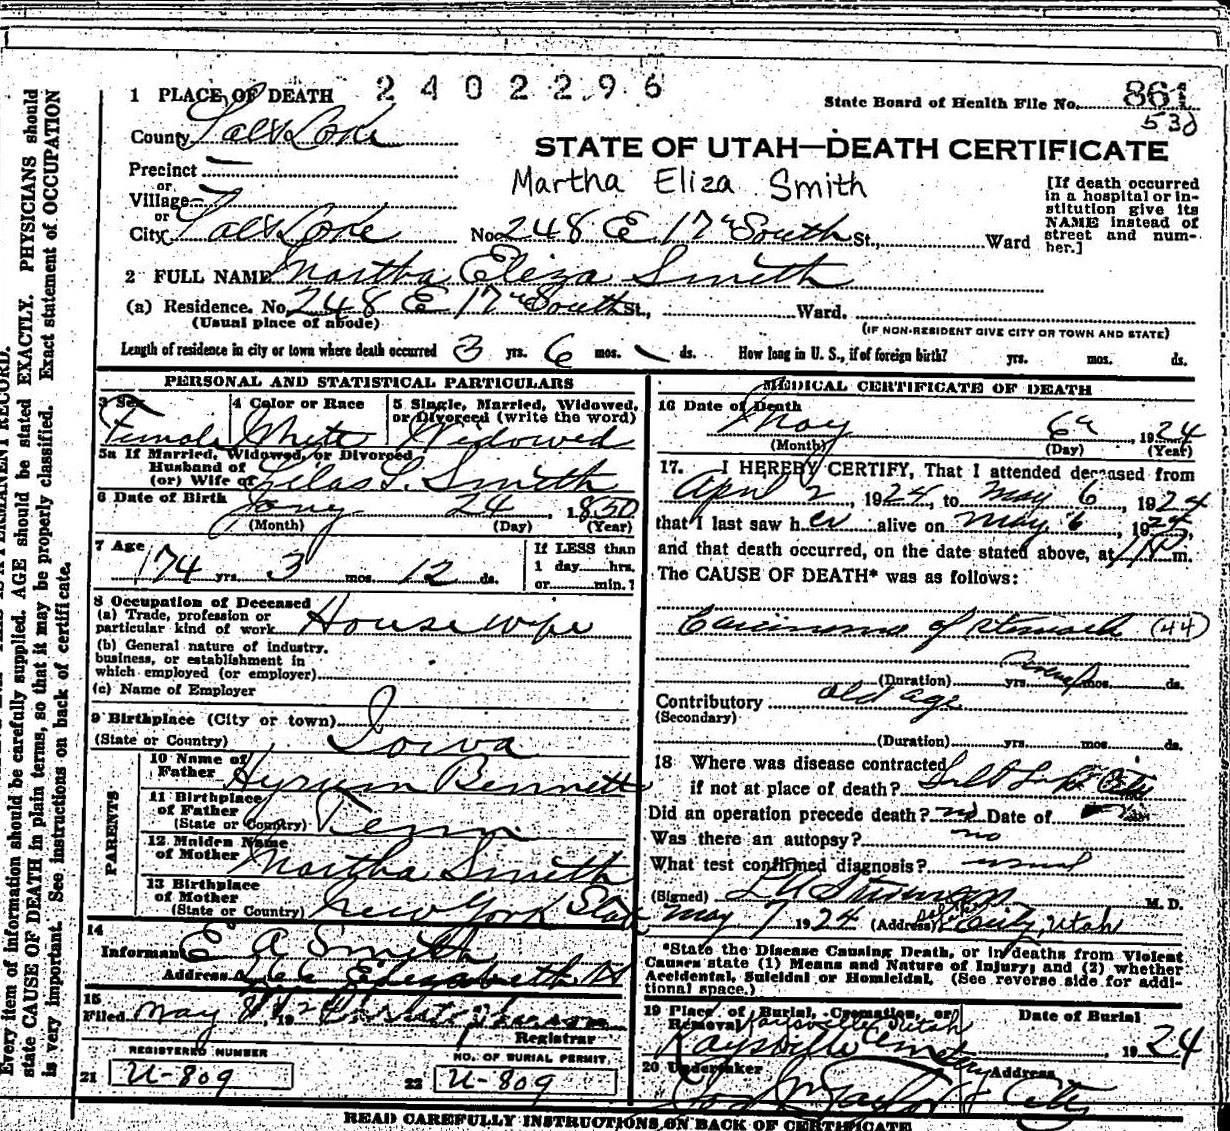 2402296
1 PLACE OF DEATH
State Board of Health File No. 861
530
County Salt Lake
STATE OF UTAH—DEATH CERTIFICATE
Precinct
or
Village
or
City Salt Lake
Martha Eliza Smith
No. 248 E 17" South St., Ward
[If death occurred
in a hospital or in-
stitution give its
NAME instead of
street and num-
ber.]
2 FULL NAME Martha Eliza Smith
(a) Residence. No. 248 E 17" South St., Ward.
(Usual place of abode)
(IF NON-RESIDENT GIVE CITY OR TOWN AND STATE)
Length of residence in city or town where death occurred 3 yrs. 6 mos. ds. How long in U. S., if of foreign birth? yrs. mos. ds.
PERSONAL AND STATISTICAL PARTICULARS
3 Sex
Female
4 Color or Race
White
5 Single, Married, Widowed,
or Divorced (write the word)
Widowed
5a If Married, Widowed, or Divorced
Husband of
(or) Wife of Silas S. Smith
6 Date of Birth
Jany 24 1850
(Month) (Day) (Year)
7 Age
74 yrs. 3 mos. 12 ds.
If LESS than
1 day hrs.
or min.?
8 Occupation of Deceased
(a) Trade, profession or
particular kind of work Housewife
(b) General nature of industry,
business, or establishment in
which employed (or employer)
(c) Name of Employer
9 Birthplace (City or town)
(State or Country) Iowa
PARENTS
10 Name of
Father Hyrum Bennett
11 Birthplace
of Father
(State or Country) Tenn
12 Maiden Name
of Mother Martha Smith
13 Birthplace
of Mother
(State or Country) New York State
14
Informant E A Smith
Address Elizabeth
15
Filed May 8 192
Registrar
REGISTERED NUMBER
21 U-809
NO. OF BURIAL PERMIT
22 U-809
MEDICAL CERTIFICATE OF DEATH
16 Date of Death
May 6" 1924
(Month) (Day) (Year)
17. I HEREBY CERTIFY, That I attended deceased from
April 2, 1924, to May 6 1924
that I last saw her alive on May 6, 1924,
and that death occurred, on the date stated above, at 1 P m.
The CAUSE OF DEATH* was as follows:
Carcinoma of stomach (44)
(Duration) yrs. several mos. ds.
Contributory old age
(Secondary)
(Duration) yrs. mos. ds.
18 Where was disease contracted
if not at place of death? Salt Lake City
Did an operation precede death? no Date of
Was there an autopsy? no
What test confirmed diagnosis? usual
(Signed) M. D.
May 7 1924 (Address) City, Utah
*State the Disease Causing Death, or in deaths from Violent
Causes state (1) Means and Nature of Injury; and (2) whether
Accidental, Suicidal or Homicidal. (See reverse side for addi-
tional space.)
19 Place of Burial, Cremation, or
Removal Kaysville Utah
Kaysville Cemetery
Date of Burial
1924
20 Undertaker
Address
Jos Wm Taylor City
READ CAREFULLY INSTRUCTIONS ON BACK OF CERTIFICATE
Every item of information should be carefully supplied. AGE should be stated EXACTLY. PHYSICIANS should
state CAUSE OF DEATH in plain terms, so that it may be properly classified. Exact statement of OCCUPATION
is very important. See instructions on back of certificate.